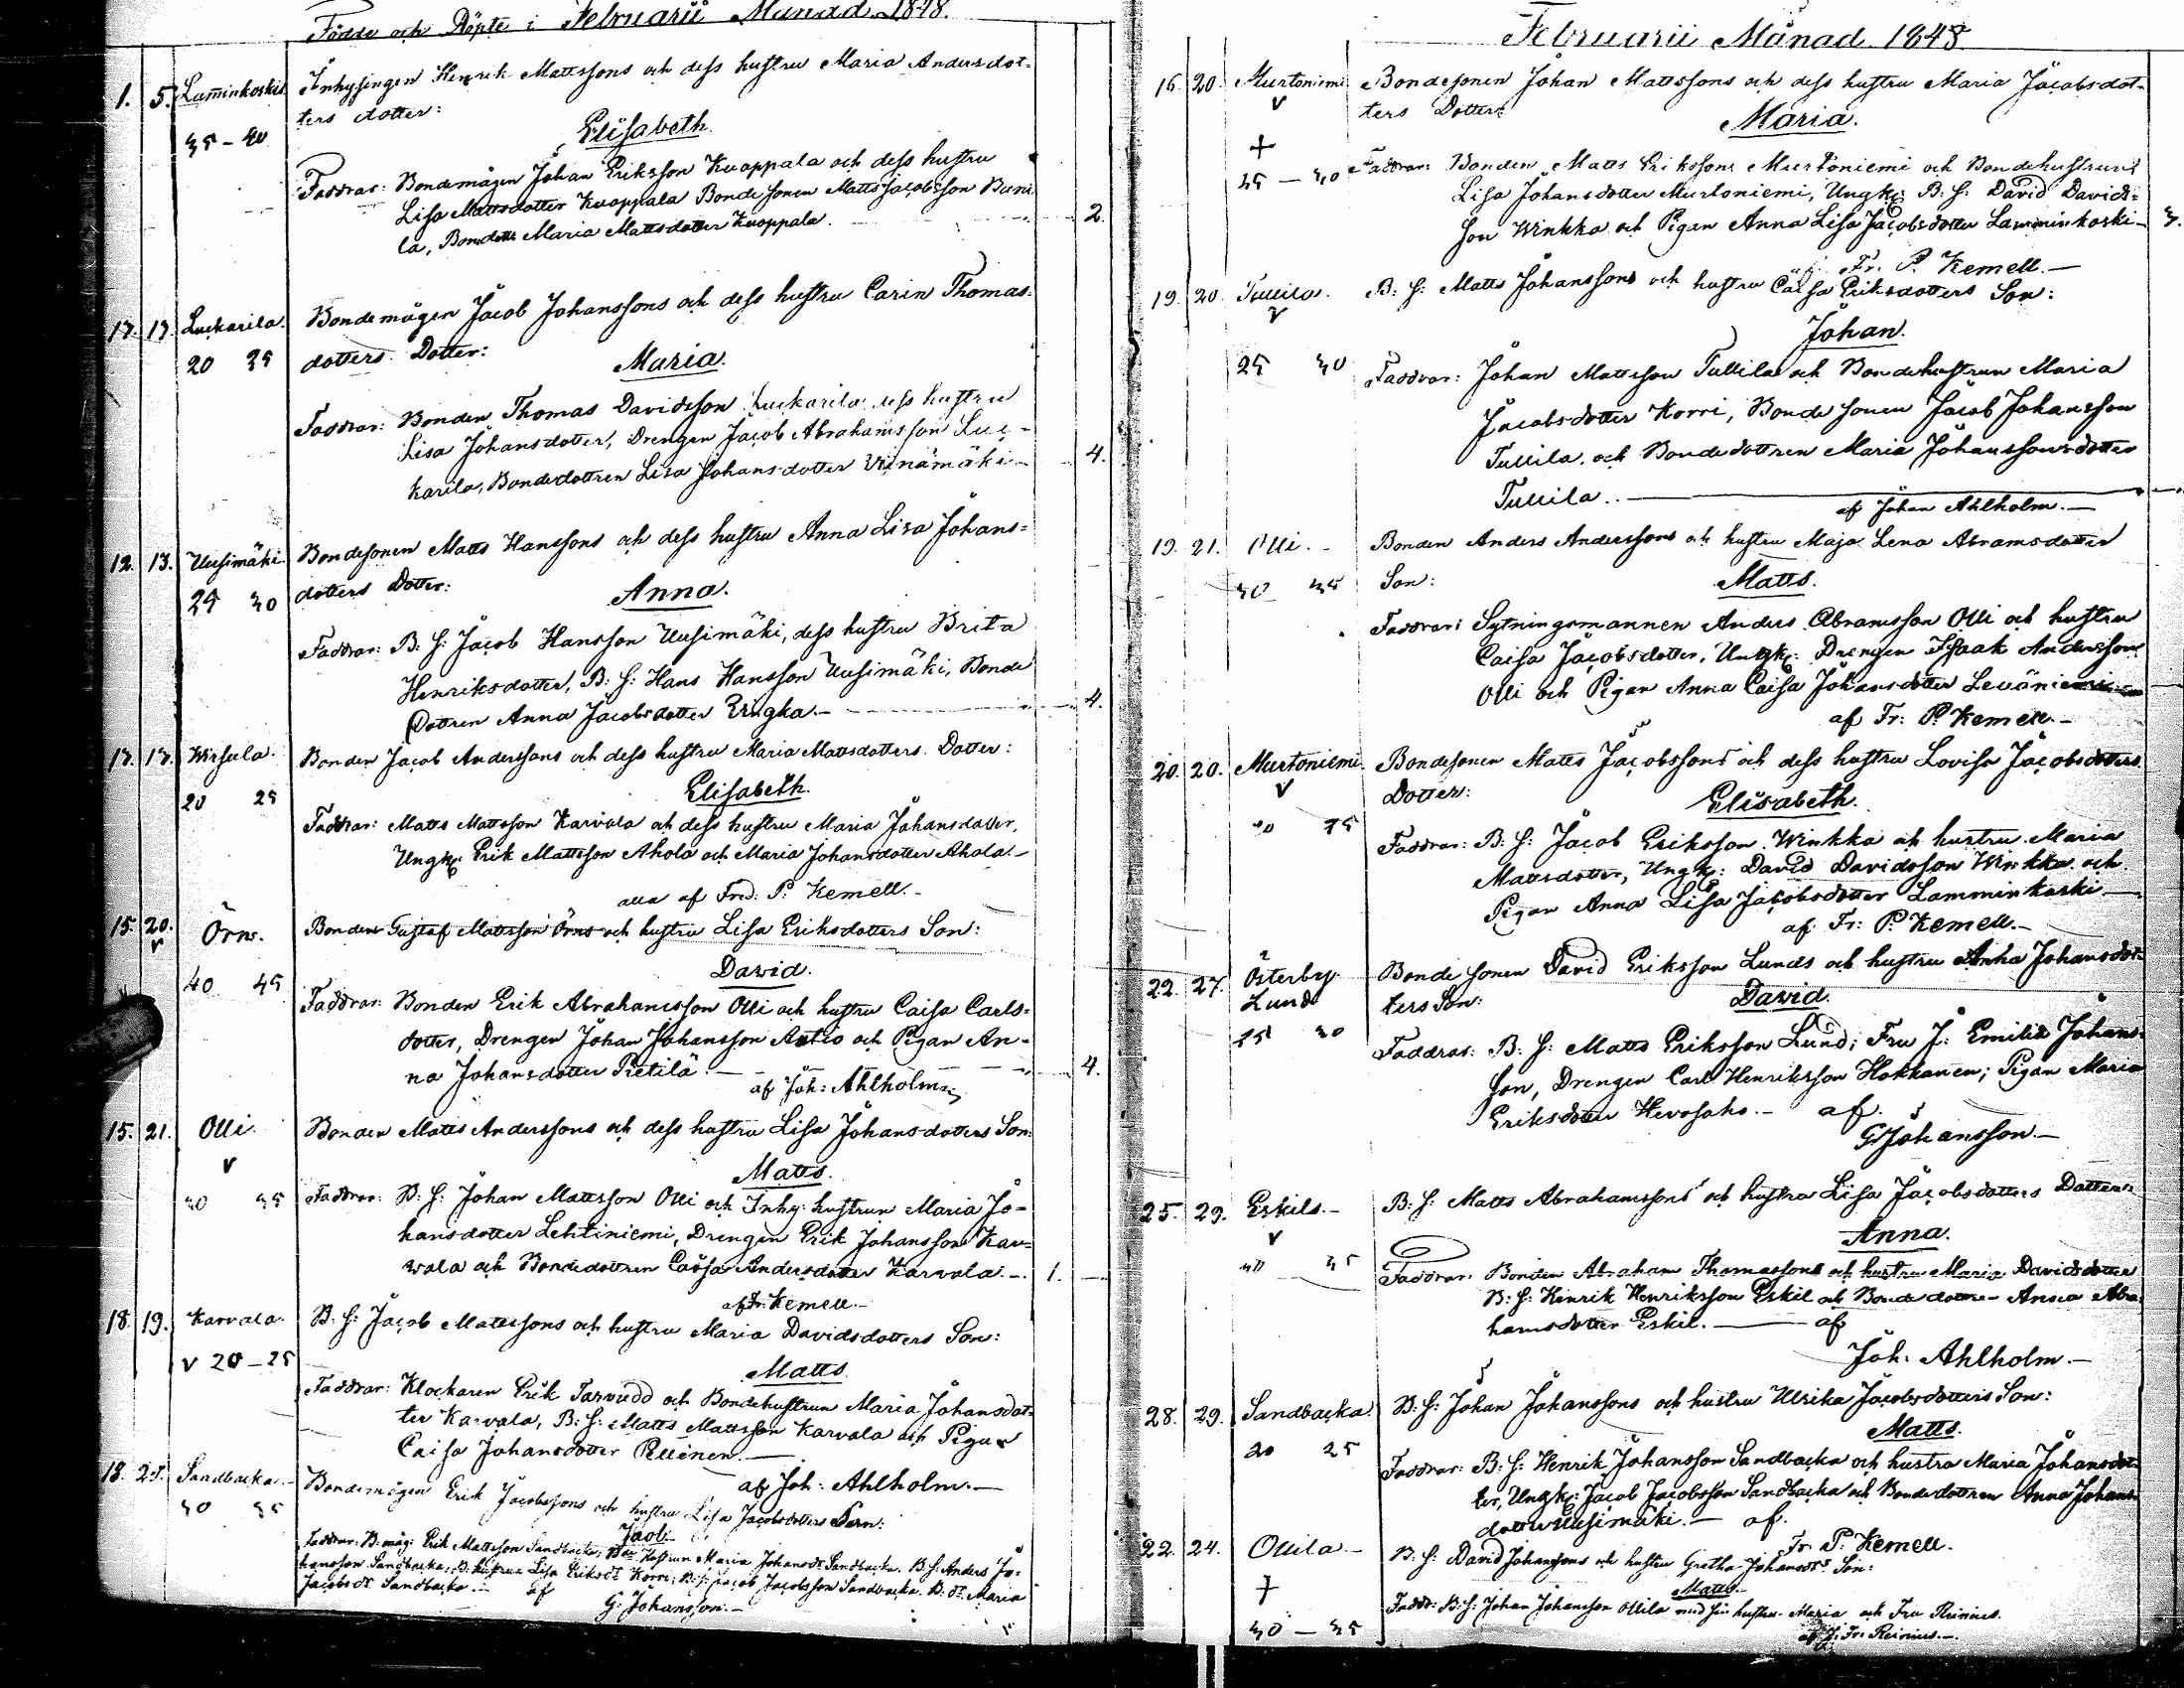 Födde och Döpte i Februarii Månad 1848.
1. 5. Lamminkoski Inhysingen Henrik Mattssons och dess hustru Maria Andersdot-
ters dotter:
35 - 40 Elisabeth.
Faddrar: Bondemågen Johan Eriksson Kuoppala och dess hustru
Lisa Mattsdotter Kuoppala Bondesonen Matts Jacobsson
la, Bondedottr Maria Mattsdotter Kuoppala. 2.
17. 17. Luckarila. Bondemågen Jacob Johanssons och dess hustru Carin Thomas-
20 25 dotters Dotter:
Maria.
Faddrar: Bonden Thomas Davidsson Luckarila dess hustru
Lisa Johansdotter, Drengen Jacob Abrahamsson Luc-
karila, Bondedottren Lisa Johansdotter 4.
12. 13. Uusimäki. Bondesonen Matts Hanssons och dess hustru Anna Lisa Johans-
25 30 dotters Dotter:
Anna.
Faddrar: B: S: Jacob Hansson Uusimäki, dess hustru Brita
Henriksdotter, B: S: Hans Hansson Uusimäki, Bonde
Dottren Anna Jacobsdotter 4.
17. 17. Wirsula. Bonden Jacob Anderssons och dess hustru Maria Mattsdotters Dotter:
20 25 Elisabeth.
Faddrar: Matts Mattsson Karvala och dess hustru Maria Johansdotter,
Ungk: Erik Mattsson Ahola och Maria Johansdotter Ahola.-
alla af Fred: P. Kemell.-
15. 20. v Örns. Bonden Gustaf Mattsson Örns och hustru Lisa Eriksdotters Son:
40 45 David.
Faddrar: Bonden Erik Abrahamsson Olli och hustru Caisa Carls-
dotter, Drengen Johan Johansson Antio och Pigan An-
na Johansdotter Pietilä. 4.
af Joh: Ahlholm
15. 21. Olli. Bonden Matts Anderssons och dess hustru Lisa Johansdotters Son:
v Matts.
30 35 Faddrar: B: S: Johan Mattsson Olli och Inhy: hustrun Maria Jo-
hansdotter Lehtiniemi, Drengen Erik Johansson Kar-
vala och Bondedottren Caisa Andersdotter Karvala.- 1.
af Fr. Kemell.-
18. 19. Karvala. B: S: Jacob Matssons och hustru Maria Davidsdotters Son:
v 20 - 25 Matts.
Faddrar: Klockaren Erik Tarvudd och Bondehustrun Maria Johansdot-
ter Karvala, B: S: Matts Mattsson Karvala och Pigan
Caisa Johansdotter Pellinen.
af Joh: Ahlholm.-
18. Sandbacka.- Bondemågen Erik Jacobssons och hustru Lisa Jacobsdotters Son:
30 35 Jacob
Faddrar: B: måg: Erik Mattsson Sandbacka, Hustrun Maria Johansdr Sandbacka. B: S: Anders Jo-
hansson Sandbacka, B: hustrun Lisa Eriksdr Korri; B: S: Jacob Jacobsson Sandbacka. B: dr Maria
Jacobsdr Sandbacka.- af
G: Johansson.-
Februarii Månad 1848
16. 20. Murtoniemi Bondesonen Johan Mattssons och dess hustru Maria Jacobsdot-
v ters Dotter:
Maria.
+
35 - 40 Faddrar: Bonden Matts Erikssons Murtoniemi och Bondehustrun
Lisa Johansdotter Murtoniemi, Ungk: B: S: David Davids-
son Winkka och Pigan Anna Lisa Jacobsdotter Lamminkoski- 3.
Fr. P. Kemell.-
19. 20. Tullila. B: S: Matts Johanssons och hustru Caisa Eriksdotters Son:
v
Johan.
25 30 Faddrar: Johan Mattsson Tullila och Bondehustrun Maria
Jacobsdotter Korri, Bonde sonen Jacob Johansson
Tullila, och Bondedottren Maria Johanssonsdotter
Tullila.
af Johan Ahlholm.-
19. 21. Olli.- Bonden Anders Anderssons och hustru Maja Lena Abramsdotter
30 35 Son:
Matts.
Faddrar: Sytningsmannen Anders Abramsson Olli och hustru
Caisa Jacobsdotter, Ungk: Drengen Isaak Anderssons
Olli och Pigan Anna Caisa Johansdotter Leväniemi
af Fr: P. Kemell.-
20. 20. Murtoniemi. Bondesonen Matts Jacobssons och dess hustru Lovisa Jacobsdotters
v Dotter:
Elisabeth.
Faddrar: B: S: Jacob Eriksson Winkka och hustru Maria
Mattsdotter, Ungk: David Davidsson Winkka och
Pigan Anna Lisa Jacobsdotter Lamminkoski
af Fr: P. Kemell.-
22. 27. Österby Lund Bonde sonen David Eriksson Lunds och hustru Anna Johansdot-
ters Son:
David.
Faddrar: B: S: Matts Eriksson Lund; Fru J: Emilia Johans-
son, Drengen Carl Henriksson Hokkanen; Pigan Maria
Eriksdotter Hevosaho.- af
G Johansson.-
25. 29. Eskils.- B: S: Matts Abrahamssons och hustru Lisa Jacobsdotters Dotter:
v
Anna.
Faddrar: Bonden Abraham Thomassons och hustru Maria Davidsdotter
B: S: Henrik Henriksson Eskil och Bonde dottren Anna Abra-
hamsdotter Eskil. - af
Joh: Ahlholm.-
28. 29. Sandbacka. B: S: Johan Johanssons och hustru Ulrika Jacobsdotters Son:
20 25 Matts.
Faddrar: B: S: Henrik Johansson Sandbacka och hustru Maria Johansdot-
ter, Ungk: Jacob Jacobsson Sandbacka och Bondedottren Anna Johans-
dotter Uusimäki.- af
Fr. P. Kemell.
22. 24. Ollila.- B: S: David Johanssons och hustru Gretha Johansdrs Son:
+ Matts.-
30 - 35 Faddr: B: S: Johan Johansson Ollila med sin hustru Maria och Fru Reinius.
af J: Fr: Reinius.-